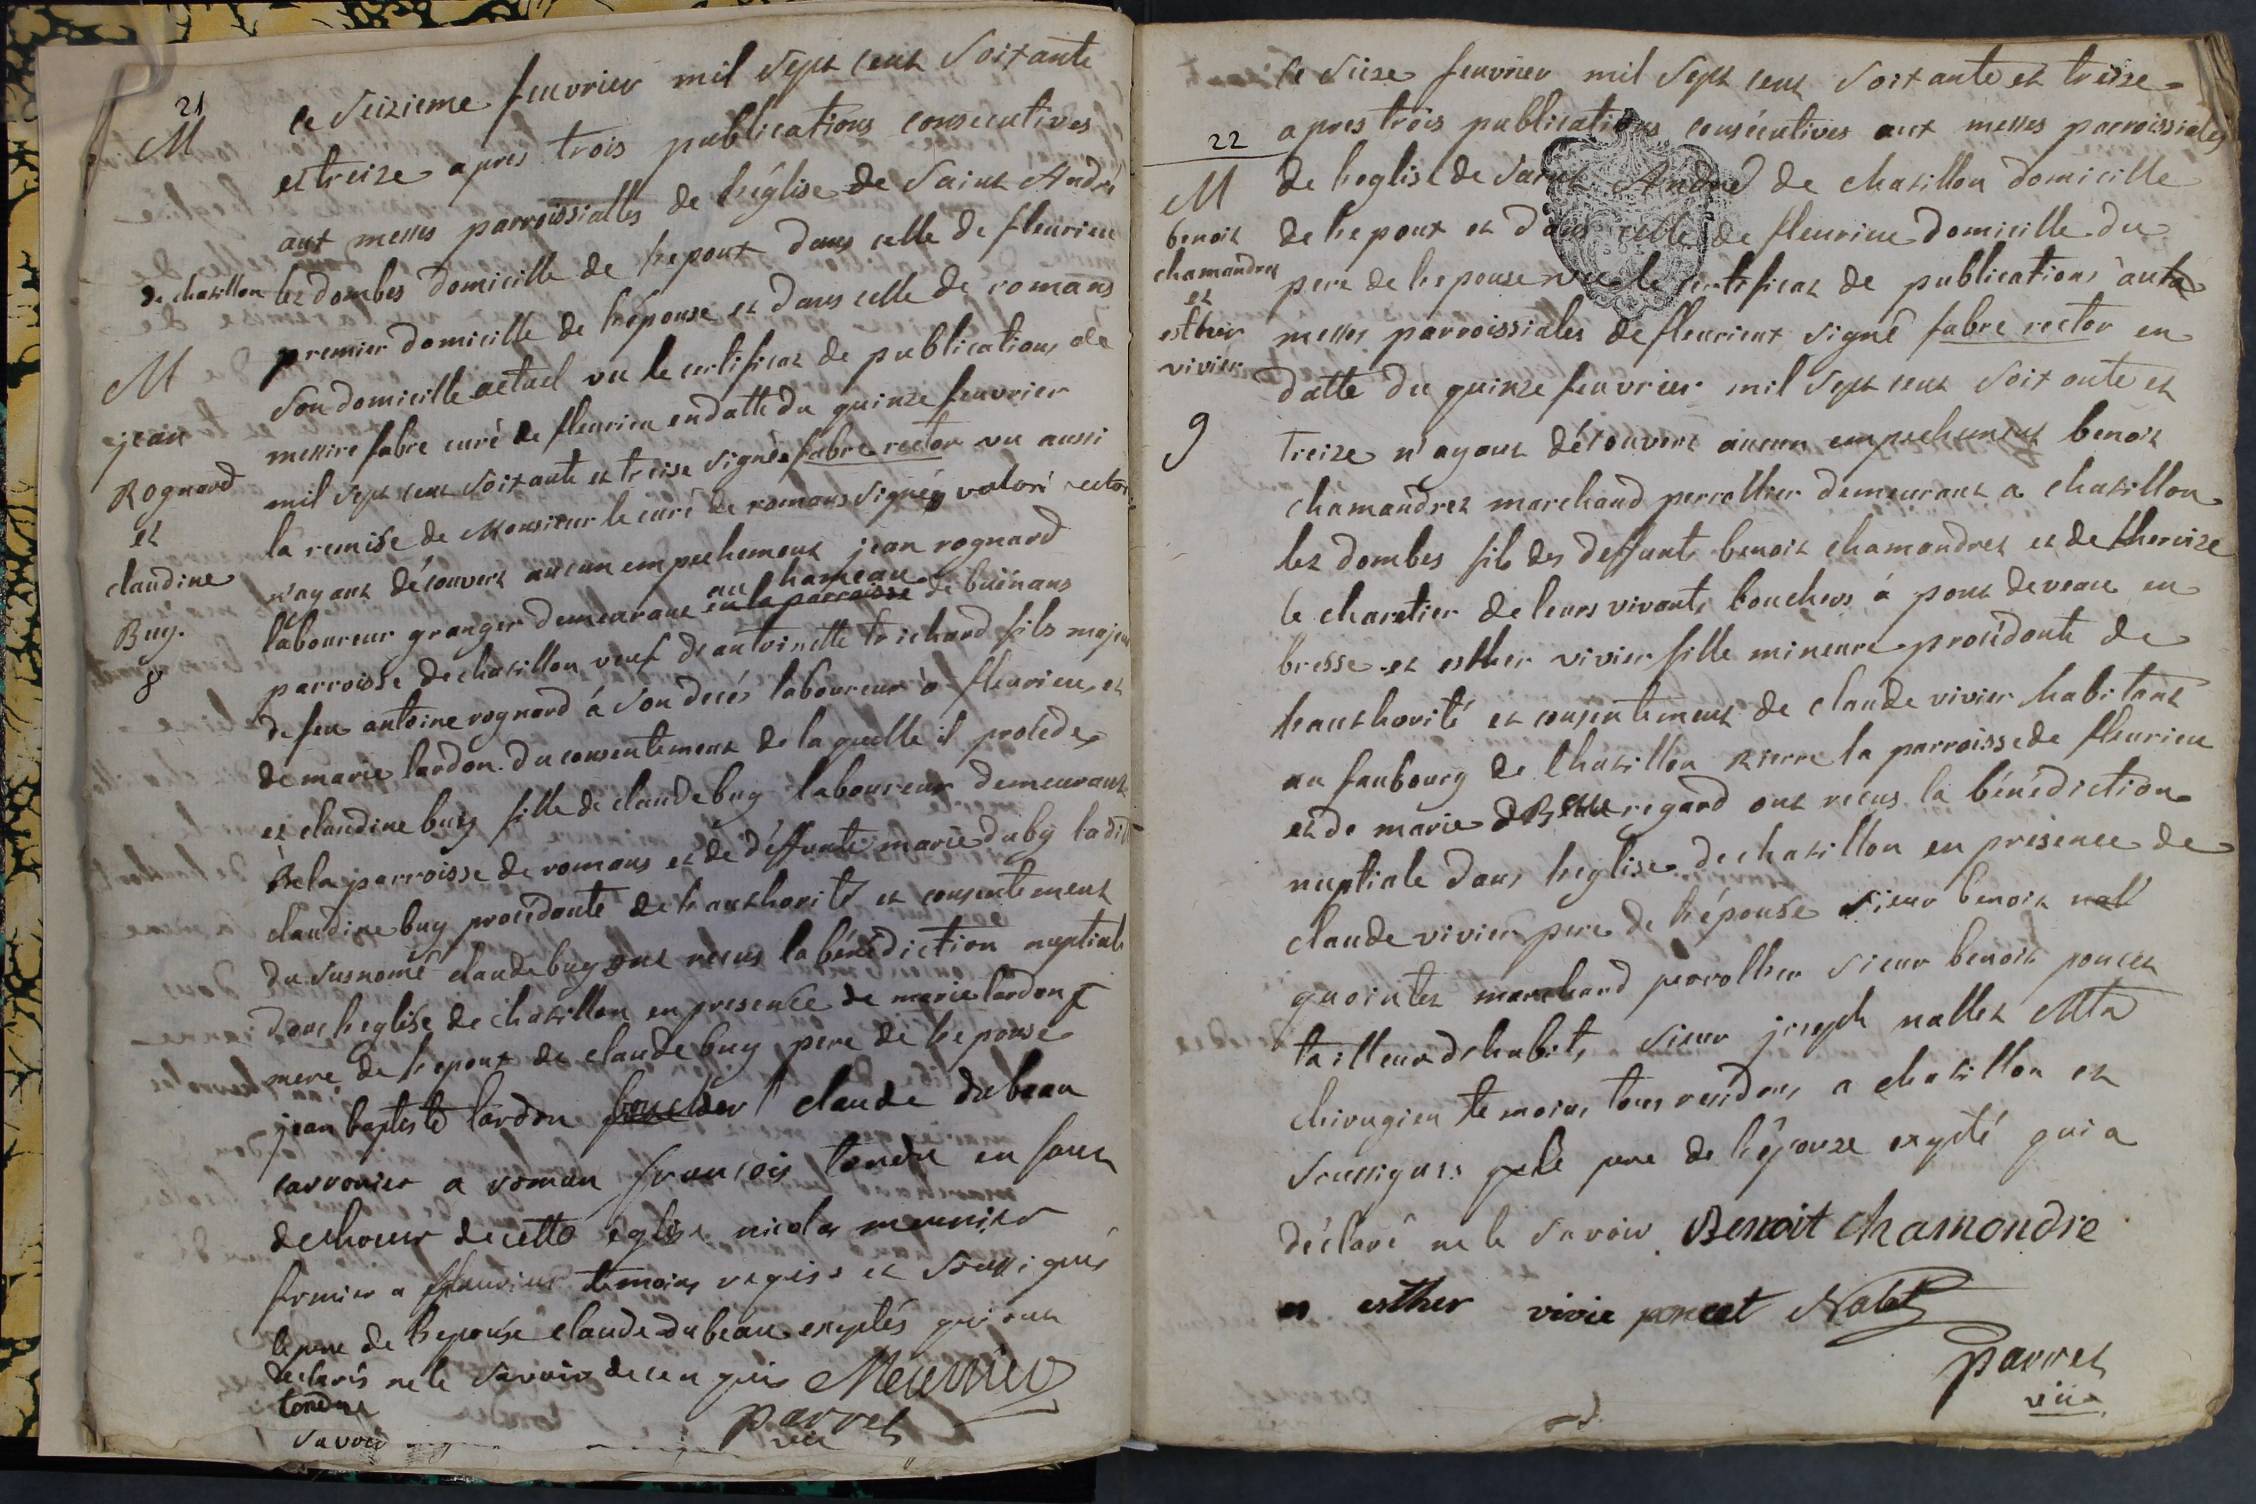 21
M
ce seizieme feuvrier mil sept cent soixante
et treize apres trois publications consecutives
aux messes parroissialles de l'église de Saint André
de chatillon lez dombes domicille de l'epoux dans celle de fleurieu
premier domicille de l'épouse et dans celle de romans
son domicille actuel vu le certificat de publications de
messire fabre curé de fleurieu en datte du quinze feuvrier
mil sept cent soixante et treise signé fabre rector vu aussi
la remise de Monsieur le curé de romans signé rector
n'ayant découvert aucun empechement jean rognard
laboureur granger demeurant au hameau en la parroisse de buënans
parroisse de chatillon veuf de antoinette trichard fils majeur
de feu antoine rognard á son decés laboureur á fleurieu, et
de marie lardon du consentement de laquelle il procede
et claudine buy fille de claude buy laboureur demeurant
de la parroisse de romans et de déffunte marie duby ladit
claudine buy procédante de l'authorité et consentement
du susnomé claude buy ont recus la bénédiction nuptiale
dans l'eglise de chatillon en presence de marie lardon
mere de l'epoux de claude buy pere de l'epouse
jean baptiste lardon claude dubeau
a roman françois tondu en
de choeur de cette église nicolas meunier
fermier a fleurieu temoins requis et soussignés
le pere de l'epouse claude dubeau exeptés qui ont
declarés ne le savoir de ce en quis Meunier
tondu
savoir
parret
vic
M
jean
Rognard
et
claudine
Buy.
8
22
M
benoit
chamandret
et
esther
vivier
9
le seize feuvrier mil sept cent soixante et treize
apres trois publications consécutives aux messes parroissiales
de l'eglise de Saint André de chatillon domicille
de l'epoux et dans celle de fleurieu domicille du
pere de l'epouse vu le certificat de publications aux
messes parroissiales de fleurieux signé fabre rector en
datte du quinze feuvrier mil sept cent soixante et
treize n'ayant découvert aucun empechement benoit
chamandret marchand perrollier demeurant a chatillon
lez dombes fils des deffunts benoit chamandret et de therese
le charetier de leurs vivants bouchers á pont de veau en
bresse et esther vivier fille mineure procédante de
l'authorité et consentement de claude vivier habitant
au faubourg de Chatillon rierre la parroisse de fleurieu
et de marie de Beauregard ont recus la bénédiction
nuptiale dans l'eglise de chatillon en présence de
claude vivier pere de l'épouse sieur benoit
marchand perrollier sieur benoit poncet
tailleur d'habits sieur joseph nallet Mtre
chirugien temoins tous residens a chatillon et
soussignes le pere de l'épouse exepté qui a
déclaré ne le savoir Benoit chamondre
esther vivie poncet Nalet
parret
vic